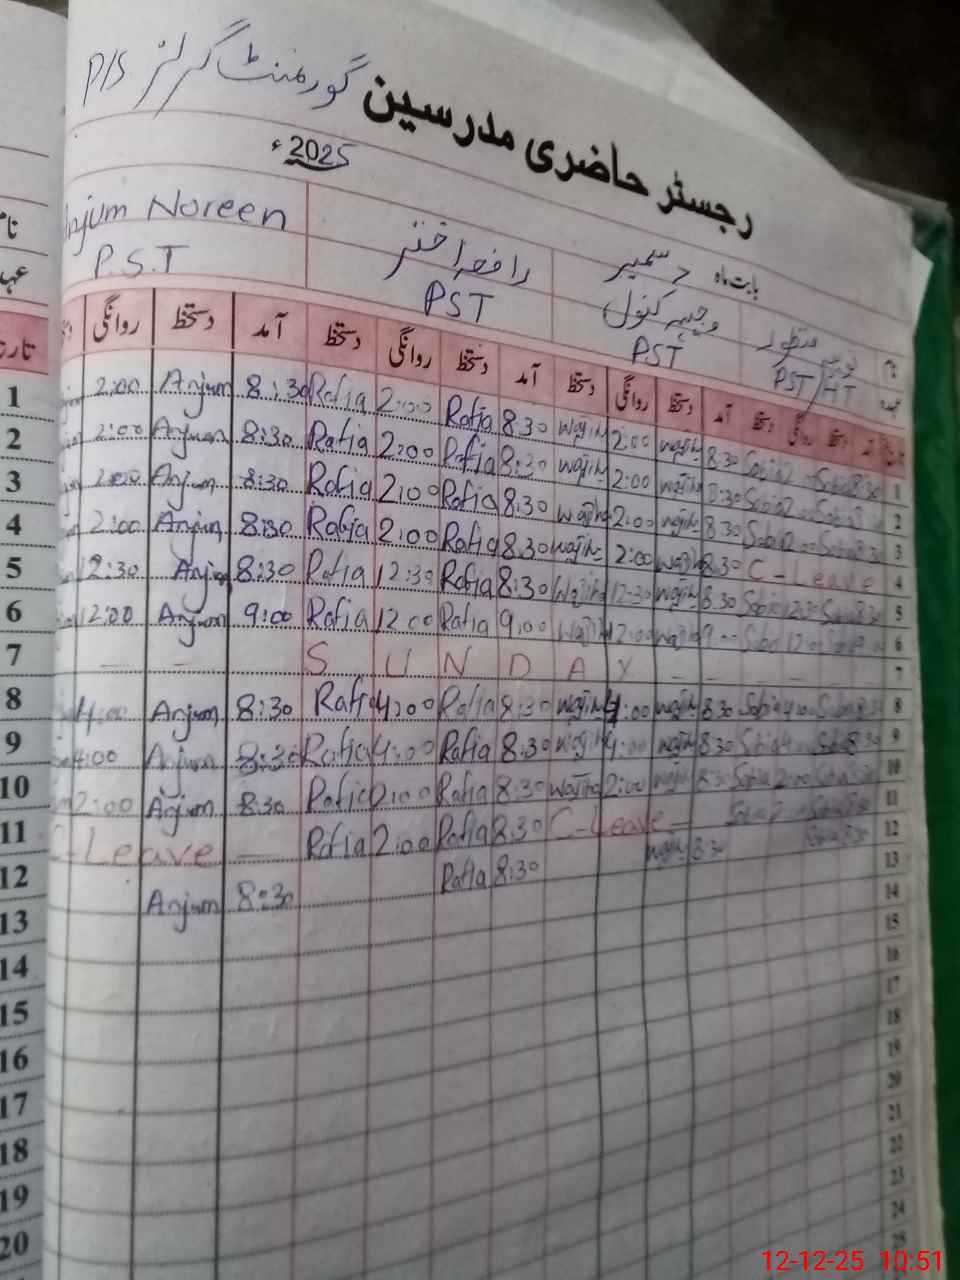 رجسٹر حاضری مدرسین گورنمنٹ گرلز P/S
بابت ماہ دسمبر 2025ء
منظور رافعہ اختر Anjum Noreen
PST/HT PST PST P.S.T
آمد دستخط روانگی دستخط آمد دستخط روانگی دستخط آمد دستخط روانگی دستخط آمد دستخط روانگی
1 8:30 Sobia 8:30 Wajiha 2:00 Wajiha 8:30 Rafia 2:00 Rafia 8:30 Anjum 2:00
2 8:30 Wajiha 2:00 Wajiha 8:30 Rafia 2:00 Rafia 8:30 Anjum 2:00
3 8:30 Wajiha 2:00 Wajiha 8:30 Rafia 2:00 Rafia 8:30 Anjum 2:00
4 C-Leave 8:30 Wajiha 2:00 Wajiha 8:30 Rafia 2:00 Rafia 8:30 Anjum 2:00
5 8:30 Sobia 12:30 Sobia 8:30 Wajiha 12:30 Wajiha 8:30 Rafia 12:30 Rafia 8:30 Anjum 12:30
6 Wajiha 12:00 Wajiha 9:00 Rafia 12:00 Rafia 9:00 Anjum 12:00
7 SUNDAY
8 8:30 Sobia 4:00 Sobia 8:30 Wajiha 4:00 Wajiha 8:30 Rafia 4:00 Rafia 8:30 Anjum 4:00
9 8:30 Wajiha 4:00 Wajiha 8:30 Rafia 4:00 Rafia 8:30 Anjum 4:00
10 8:30 Sobia 2:00 Sobia 8:30 Wajiha 2:00 Wajiha 8:30 Rafia 2:00 Rafia 8:30 Anjum 2:00
11 C-Leave 8:30 Rafia 2:00 Rafia C-Leave
12 8:30 Sobia 8:30 Wajiha 8:30 Rafia 8:30 Anjum
13
14
15
16
17
18
19
20
21
22
23
24
25
12-12-25 10:51